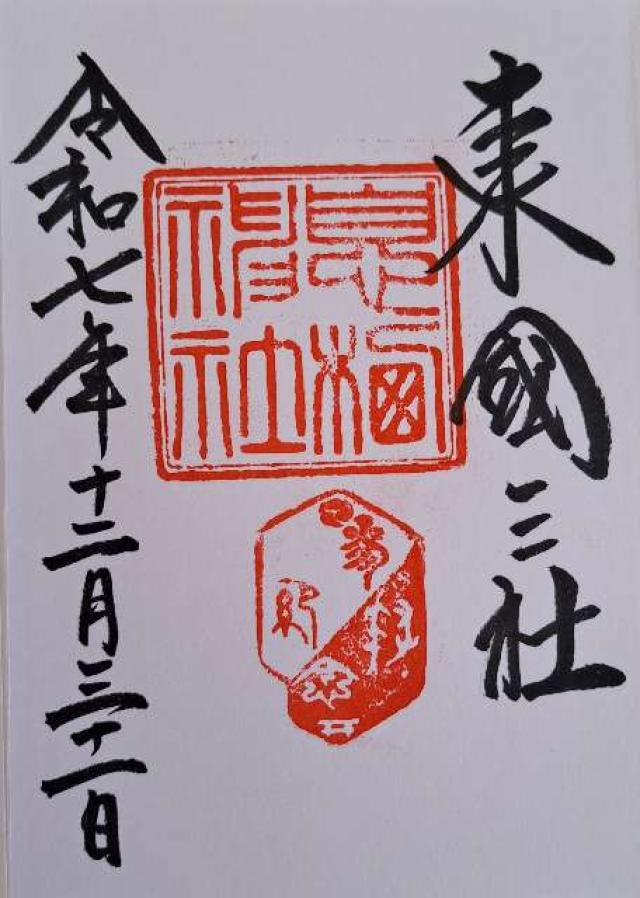 東國三社
息栖
神社
令和七年十二月三十一日